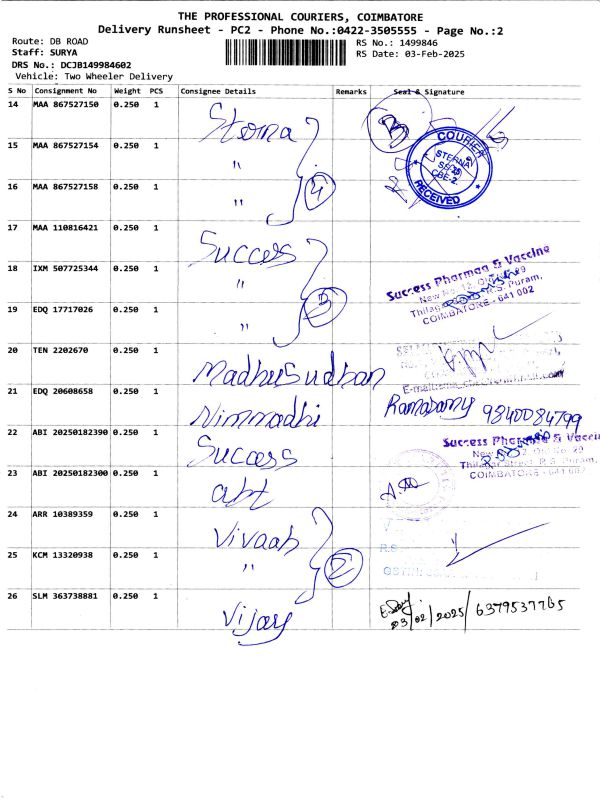 THE PROFESSIONAL COURIERS, COIMBATORE
Delivery Runsheet - PC2 - Phone No.:0422-3505555 - Page No.:2
Route: DB ROAD
Staff: SURYA
DRS No.: DCJB149984602
Vehicle: Two Wheeler Delivery
RS No.: 1499846
RS Date: 03-Feb-2025
S No Consignment No Weight PCS Consignee Details Remarks Seal & Signature
14 MAA 867527150 0.250 1 Sterna B
15 MAA 867527154 0.250 1 "
COURIER
STERNA
CBE-2.
RECEIVED
16 MAA 867527158 0.250 1 " 4
17 MAA 110816421 0.250 1 Success
18 IXM 507725344 0.250 1 "
Success Pharma & Vaccine
New No. 12, Old No. 29
R.S. Puram,
COIMBATORE - 641 002
19 EDQ 17717026 0.250 1 " 3
20 TEN 2202670 0.250 1 Madhusudhan
21 EDQ 20608658 0.250 1 Nimmadhi Ramasamy 9840084799
22 ABI 20250182390 0.250 1 Success
Success Pharma & Vaccin
Old No. 29
Street, R.S. Puram,
COIMBATORE - 641 002
23 ABI 20250182300 0.250 1 abt
24 ARR 10389359 0.250 1 Vivaah
R.S
25 KCM 13320938 0.250 1 " 2
26 SLM 363738881 0.250 1 Vijay 03/02/2025/ 6379537765